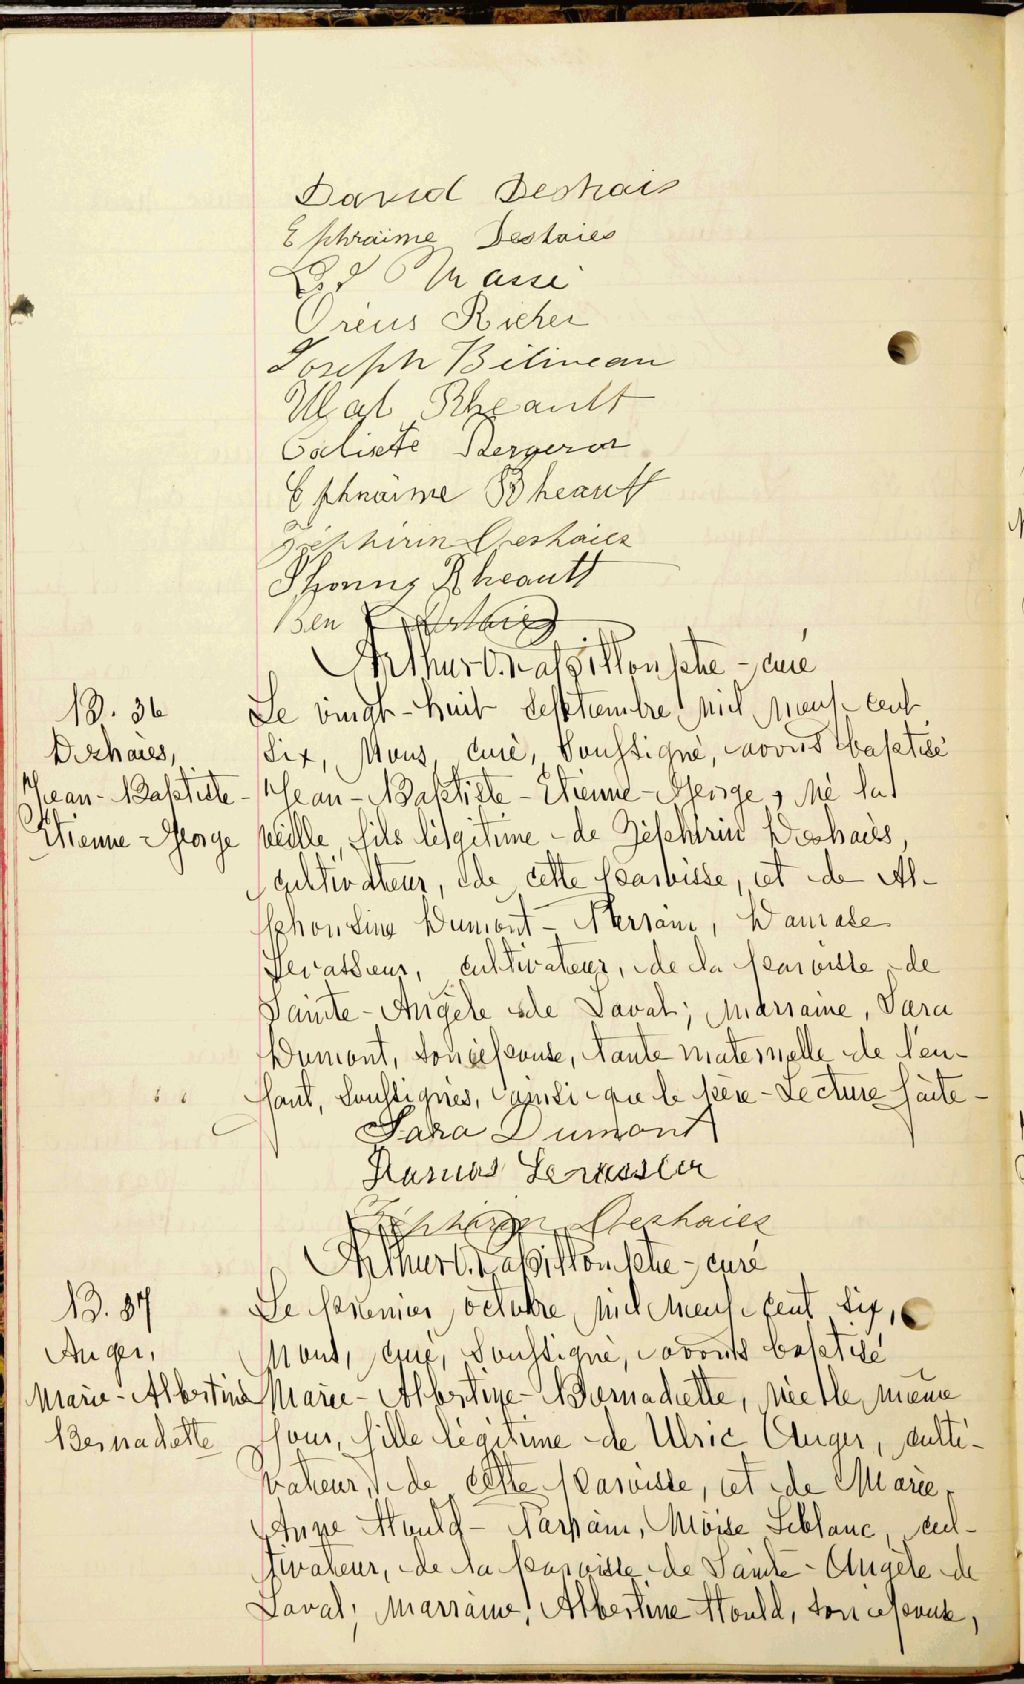 David Deshais
Ephraime Deshaies
Massé
Oréus Richer
Joseph Béliveau
Wal Rheault
Calixte Bergeron
Ephraime Rheault
Zéphirin Deshaies
Thonny Rheault
Ben Deshaies
Arthur O. Papillon ptre - curé
B. 36
Deshaies,
Jean-Baptiste-
Etienne-George
Le vingt-huit septembre mil neuf cent
six, Nous, curé, soussigné, avons baptisé
Jean-Baptiste-Etienne-George, né la
veille, fils légitime de Zéphirin Deshaies,
cultivateur, de cette paroisse, et de Al-
phonsine Dumont - Parrain, Damase
Levasseur, cultivateur, de la paroisse de
Sainte-Angèle de Laval; marraine, Sara
Dumont, son épouse, tante maternelle de l'en-
fant, soussignés, ainsi que le père - Lecture faite -
Sara Dumont
Damas Levasseur
Zéphirin Deshaies
Arthur O. Papillon ptre - curé
B. 37
Auger,
Marie-Albertine
Bernadette
Le premier octobre mil neuf cent six,
Nous, curé, soussigné, avons baptisé
Marie-Albertine-Bernadette, née le même
jour, fille légitime de Ulric Auger, culti-
vateur, de cette paroisse, et de Marie
Anne Hould - Parrain, Moïse Leblanc, cul-
tivateur, de la paroisse de Sainte-Angèle de
Laval; marraine, Albertine Hould, son épouse,